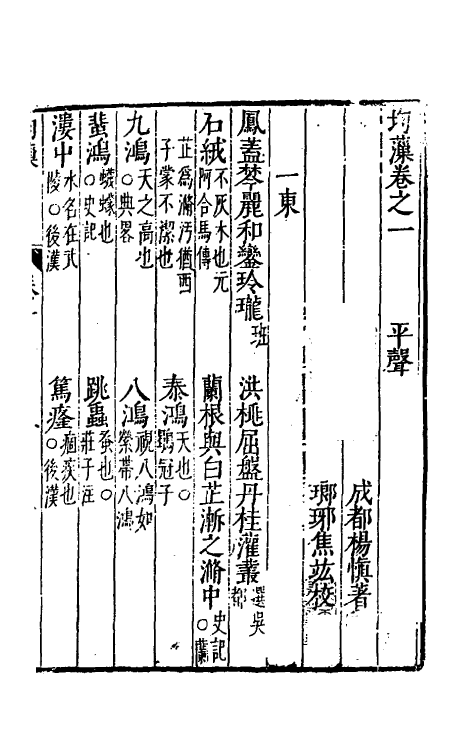 均藻卷之一 平聲
成都楊慎著
瑯琊焦竑校
一東
鳳蓋棽麗和鑾玲瓏班 洪桃屈盤丹桂灌叢選吳都
石絨不灰木也元阿合馬傳 蘭根與白芷漸之滫中史記○蘭
芷爲滫汚猶西子蒙不潔也 泰鴻天也○鶡冠子
九鴻天之高也○典畧 八鴻視八鴻如縈帶八鴻
蜚鴻蠛蠓也○史記 跳蟲蚤也○莊子注
漊中水名在武陵○後漢 篤癃痼疾也○後漢